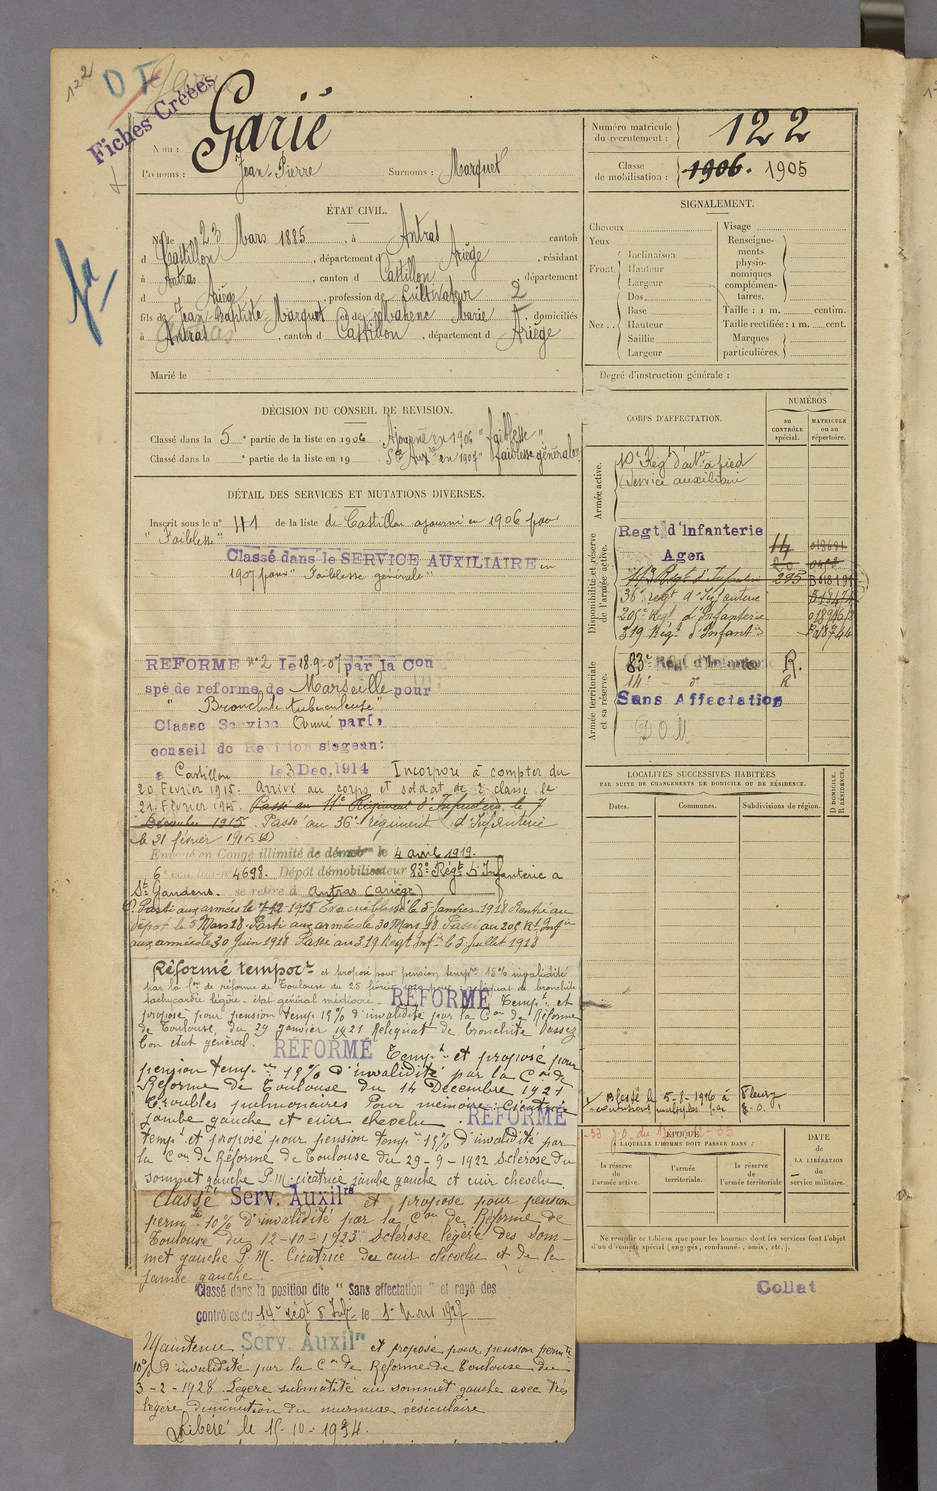 122
Fiches Créées
Nom : Garié
Prénoms : Jean-Pierre Surnoms : Marquet
Numéro matricule du recrutement : 122
Classe de mobilisation : 1906. 1905
ÉTAT CIVIL.
Né le 23 Mars 1885, à Antras canton
d Castillon, département d Ariège, résidant
à Antras, canton d Castillon, département
d Ariège, profession de Cultivateur
fils de Jean Baptiste Marquet et de Mahenc Marie domiciliés
à Antras, canton d Castillon, département d Ariège
Marié le
SIGNALEMENT.
Cheveux
Yeux
Front. Inclinaison
Hauteur
Largeur
Nez . . Dos
Base
Hauteur
Saillie
Largeur
Visage
Renseignements physionomiques complémentaires.
Taille : 1 m. centim.
Taille rectifiée : 1 m. cent.
Marques particulières.
Degré d'instruction générale :
DÉCISION DU CONSEIL DE REVISION.
Classé dans la 5e partie de la liste en 1906 Ajourné en 1906 "faiblesse"
Classé dans la e partie de la liste en 19 Sce Auxre en 1907 "faiblesse générale"
DÉTAIL DES SERVICES ET MUTATIONS DIVERSES.
Inscrit sous le n° 41 de la liste de Castillon ajourné en 1906 pour
"Faiblesse"
Classé dans le SERVICE AUXILIAIRE en
1907 pour "Faiblesse générale"
REFORME n°2 le 18-9-07 par la Con
spé de reforme de Marseille pour
"Bronchite tuberculeuse"
Classé Service Armé par le
conseil de Revision siegeant
à Castillon le 3 Dec. 1914 Incorporé à compter du
20 Février 1915. Arrivé au corps et soldat de 2e classe le
21 Février 1915. Passé au 11e Régiment d'Infanterie le 7
Décembre 1915 Passé au 36e régiment d'Infanterie
le 21 février 1915
Envoyé en Congé illimité de démob le 4 avril 1919.
6e 4698. Dépôt démobilisateur 83e Régt d'Infanterie à
St Gaudens. se retire à Antras (Ariège)
Parti aux armées le 7-12-1915 Evacué blessé le 5 Janvier 1918 Rentré au
dépôt le 5 Mars 18. Parti aux armées le 30 Mars 18 Passé au 205 Rt Infie
aux armées le 30 Juin 1918 Passé au 319 Regt Infie le 5 Juillet 1918
Réformé temport et proposé pour pension tempre 15% invalidité
par la Con de réforme de Toulouse du 25 février reliquat de bronchite
tachycardie légère. état général médiocre. REFORME Tempt et
proposé pour pension temp 15% d'invalidité par la Con de Réforme
de Toulouse, du 29 janvier 1921 Reliquat de bronchite Passez
bon état général. REFORME Tempt et proposé pour
pension tempre 15% d'invalidité par la Con de
Réforme de Toulouse du 14 Décembre 1921
Troubles pulmonaires Pour mémoire : Cicatrice
jambe gauche et cuir chevelu. REFORME
tempt et proposé pour pension tempre 15% d'invalidité par
la Con de Réforme de Toulouse du 29-9-1922 Sclérose du
sommet gauche P.M. cicatrice jambe gauche et cuir chevelu.
Classé Serv. Auxilre et proposé pour pension
permte 10% d'invalidité par la Con de Réforme de
Toulouse du 12-10-1923 Sclérose légère des som-
met gauche P.M. Cicatrice du cuir chevelu et de la
jambe gauche
Classé dans la position dite " Sans affectation " et rayé des
contrôles du 14e régt d'Infie le 1er Mars 1927
Maintenu Serv. Auxilre et proposé pour pension permte
10% d'invalidité par la Con de Réforme de Toulouse du
3-2-1928. Légère submatité au sommet gauche avec très
légère diminution du murmure vésiculaire
Libéré le 15-10-1934.
CORPS D'AFFECTATION.
NUMÉROS
au CONTRÔLE spécial.
MATRICULE ou au répertoire.
Armée active.
10e Régt d'artie à pied
Service auxiliaire
Disponibilité et réserve de l'armée active.
Regt d'Infanterie 14
Agen 20
113 Régt d'Infanterie 295
36e régt d'Infanterie
205e Régt d'Infanterie
319 Régt d'Infantie
Armée territoriale et sa réserve.
83e Régt d'Infanterie R.
14e - d° R
Sans Affectation
DOM
LOCALITÉS SUCCESSIVES HABITÉES
PAR SUITE DE CHANGEMENTS DE DOMICILE OU DE RÉSIDENCE.
Dates. Communes. Subdivisions de région.
D DOMICILE. R RÉSIDENCE.
Blessé le 5-1-1916 à Fleury
contusions multiples par
ÉPOQUE
À LAQUELLE L'HOMME DOIT PASSER DANS :
la réserve de l'armée active.
l'armée territoriale.
la réserve de l'armée territoriale
DATE DE LA LIBÉRATION du service militaire.
Ne remplir ce tableau que pour les hommes dont les services font l'objet
d'un compte spécial (engagés, condamné-, omis, etc.).
Collat